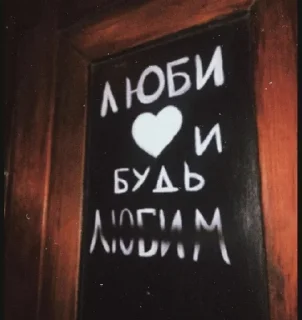 ЛЮБИ
И
БУДЬ
ЛЮБИМ